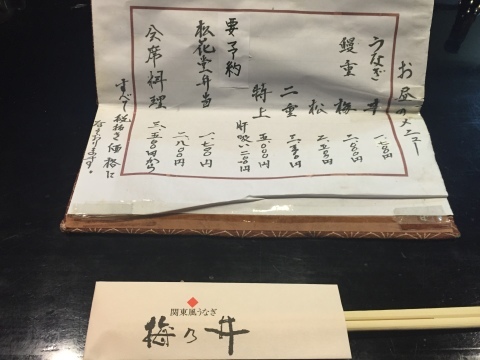 お昼のメニュー
うなぎ丼 一、七八〇円
鰻重 梅 二、八〇〇円
松
二重
特上 五、〇〇〇円
肝吸い 二〇〇円
要予約
松花堂弁当
二、八〇〇円
会席料理 三、五〇〇円から
すべて税抜き価格に
なっております。
関東風うなぎ
梅乃井